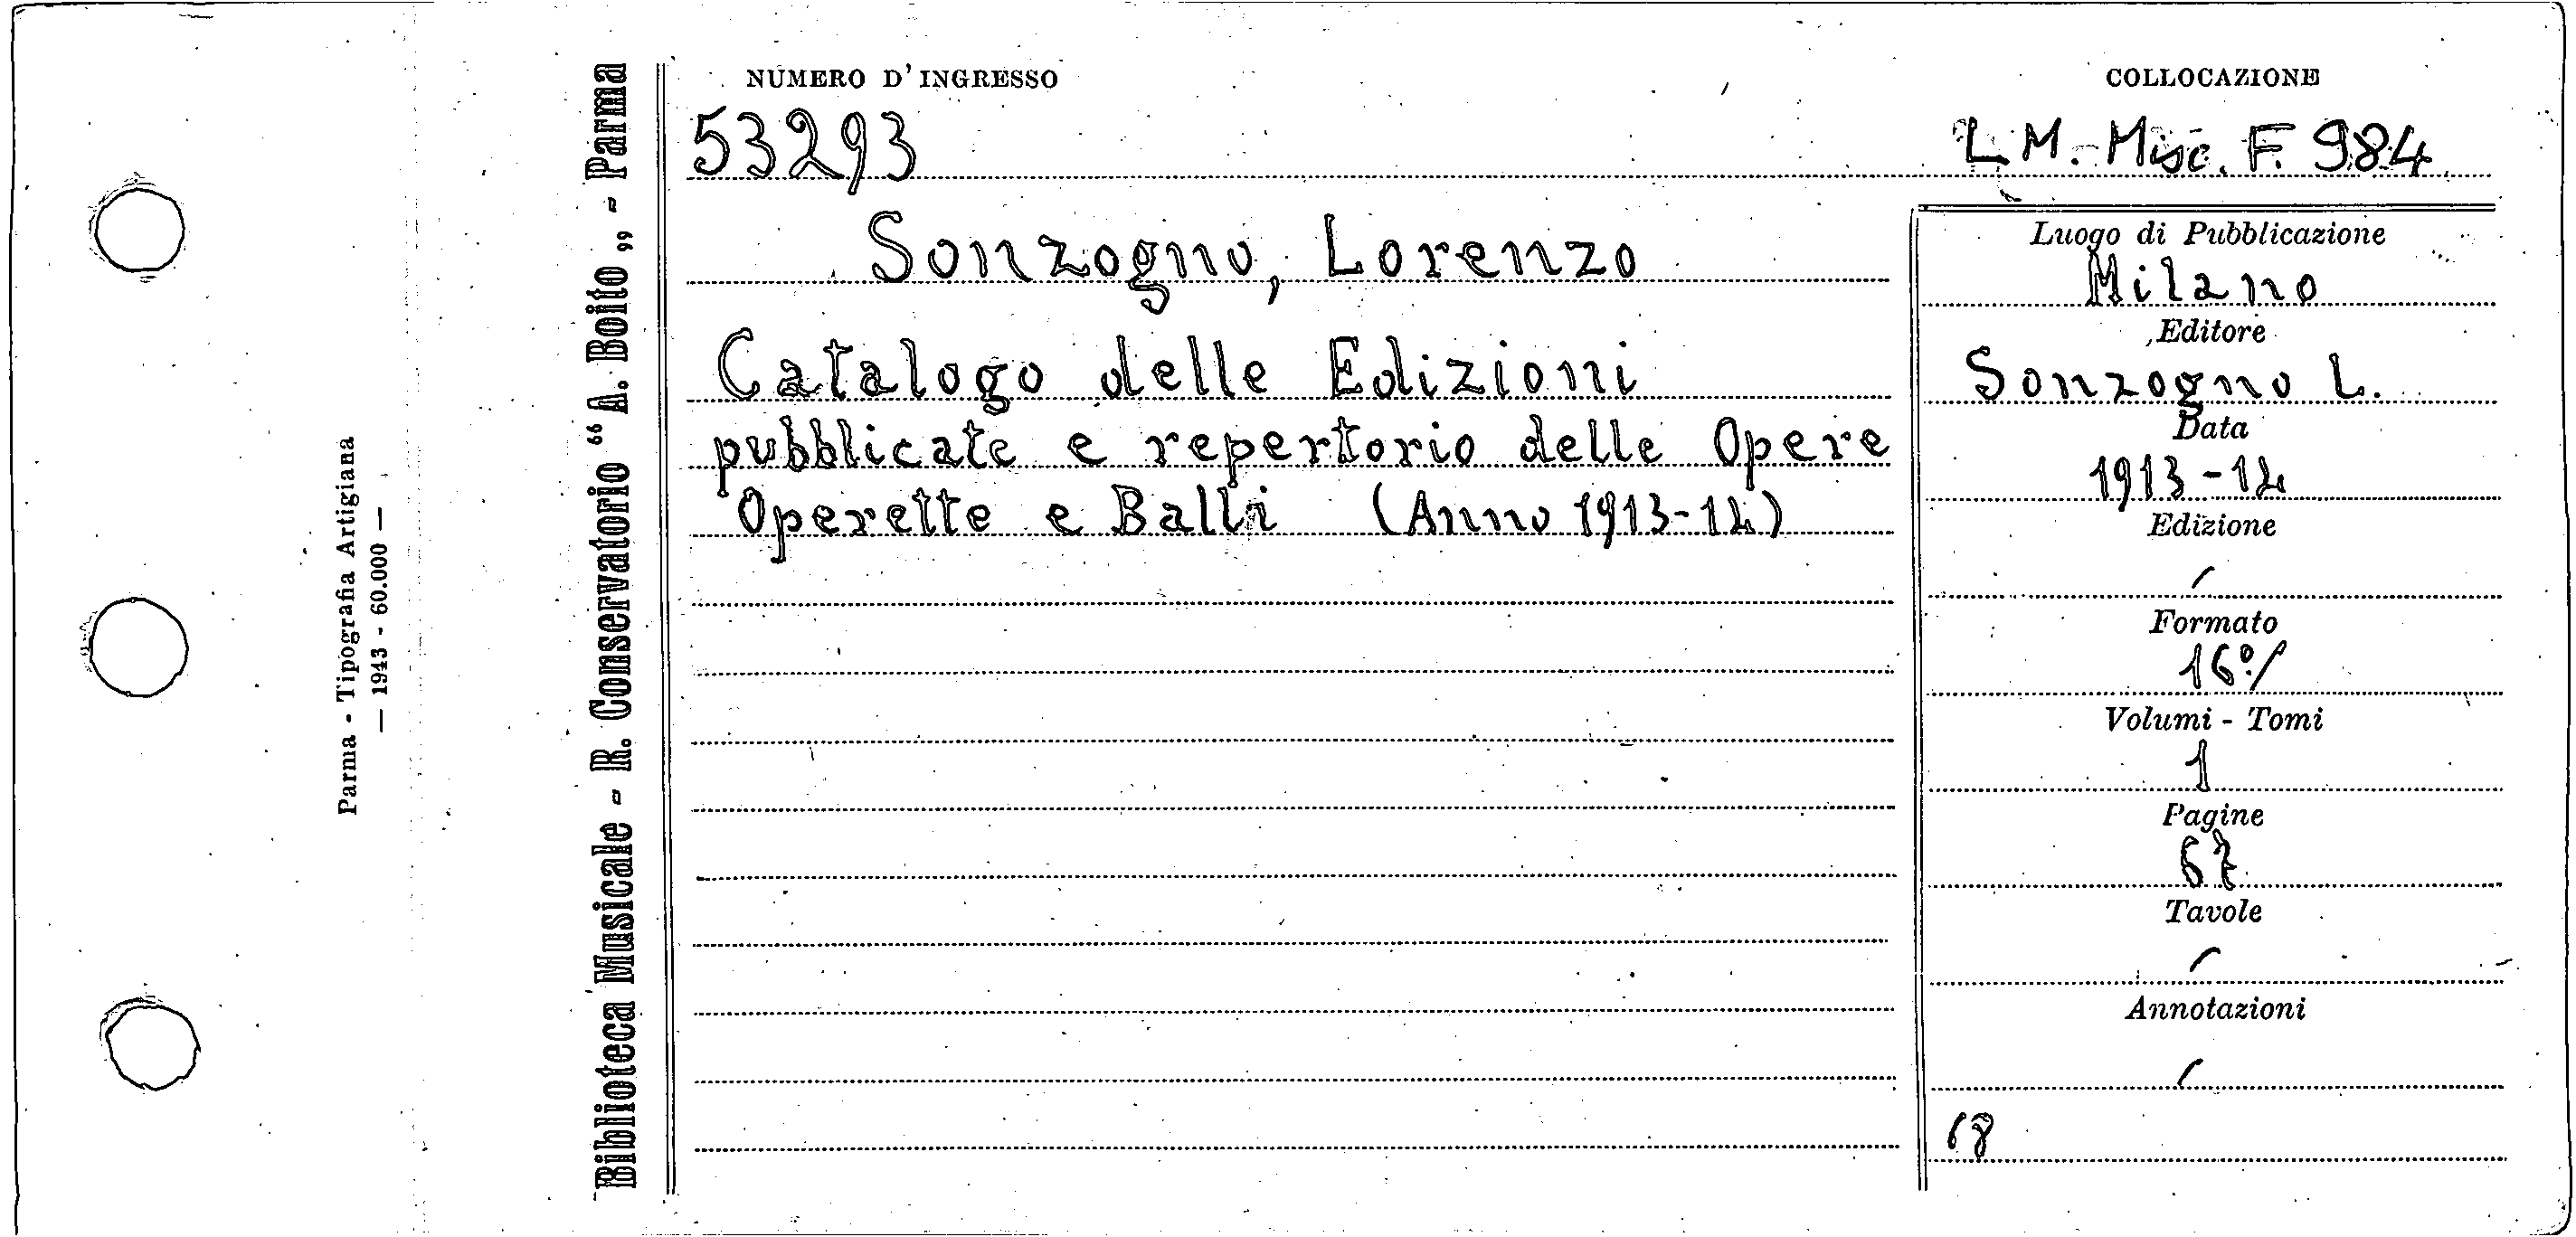 Parma - Tipografia Artigiana
— 1943 - 60.000 —
Biblioteca Musicale - R. Conservatorio “A. Boito„ - Parma
NUMERO D'INGRESSO
53293
COLLOCAZIONE
L M. - Misc. F. 984
Sonzogno, Lorenzo
Catalogo delle Edizioni
pubblicate e repertorio delle Opere
Operette e Balli (Anno 1913-14)
Luogo di Pubblicazione
Milano
Editore
Sonzogno L.
Data
1913-14
Edizione
/
Formato
16º/
Volumi - Tomi
1
Pagine
67
Tavole
/
Annotazioni
/
68